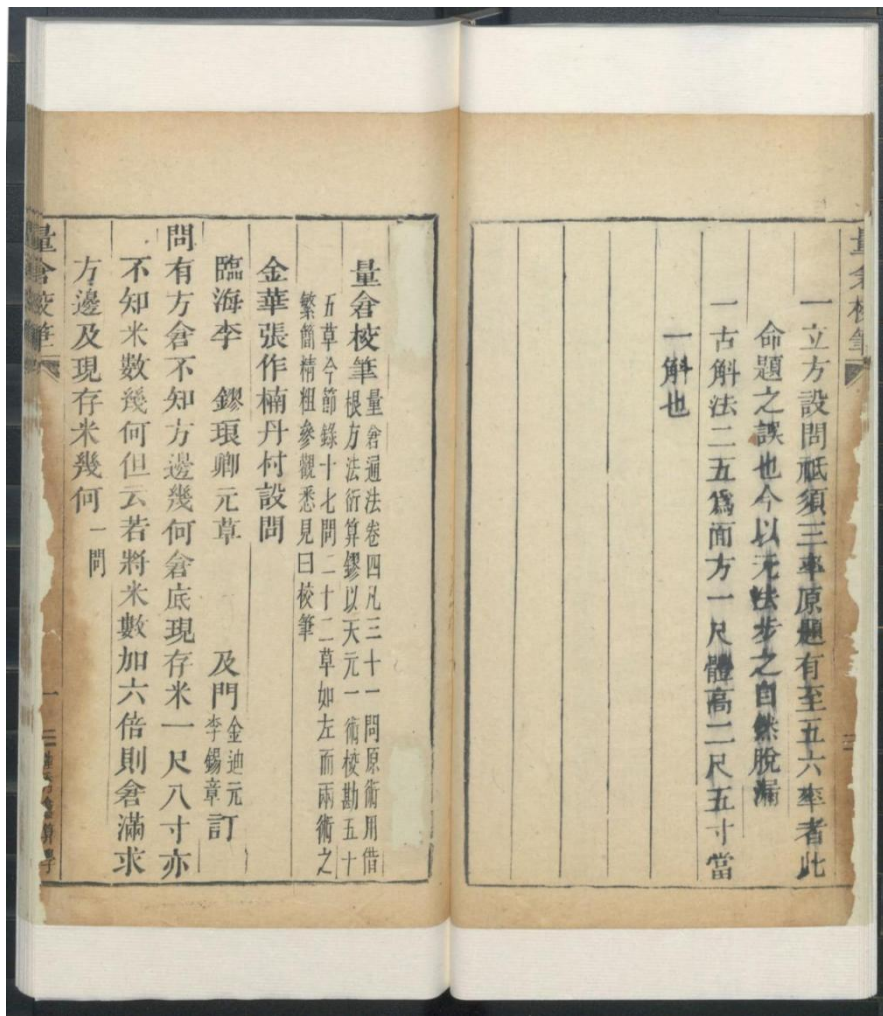 一立方設問祗須三率原題有至五六率者此
命題之誤也今以元法步之自然脫漏
一古斛法二五爲面方一尺體高二尺五寸當
一斛也
量倉校筆
量倉校筆 量倉通法卷四凡三十一問原術用借
根方法衍算鏐以天元一術校勘五十
五草今節錄十七問二十二草如左而兩術之
繁簡精粗參觀悉見曰校筆
金華張作楠丹村設問
臨海李 鏐琅卿元草 及門 金迪元 李錫章 訂
問有方倉不知方邊幾何倉底現存米一尺八寸亦
不知米數幾何但云若將米數加六倍則倉滿求
方邊及現存米幾何 一問
量倉校筆
一
算學